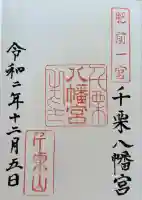 肥前一宮
千栗八幡宮
千栗
八幡宮
令和二年十二月五日